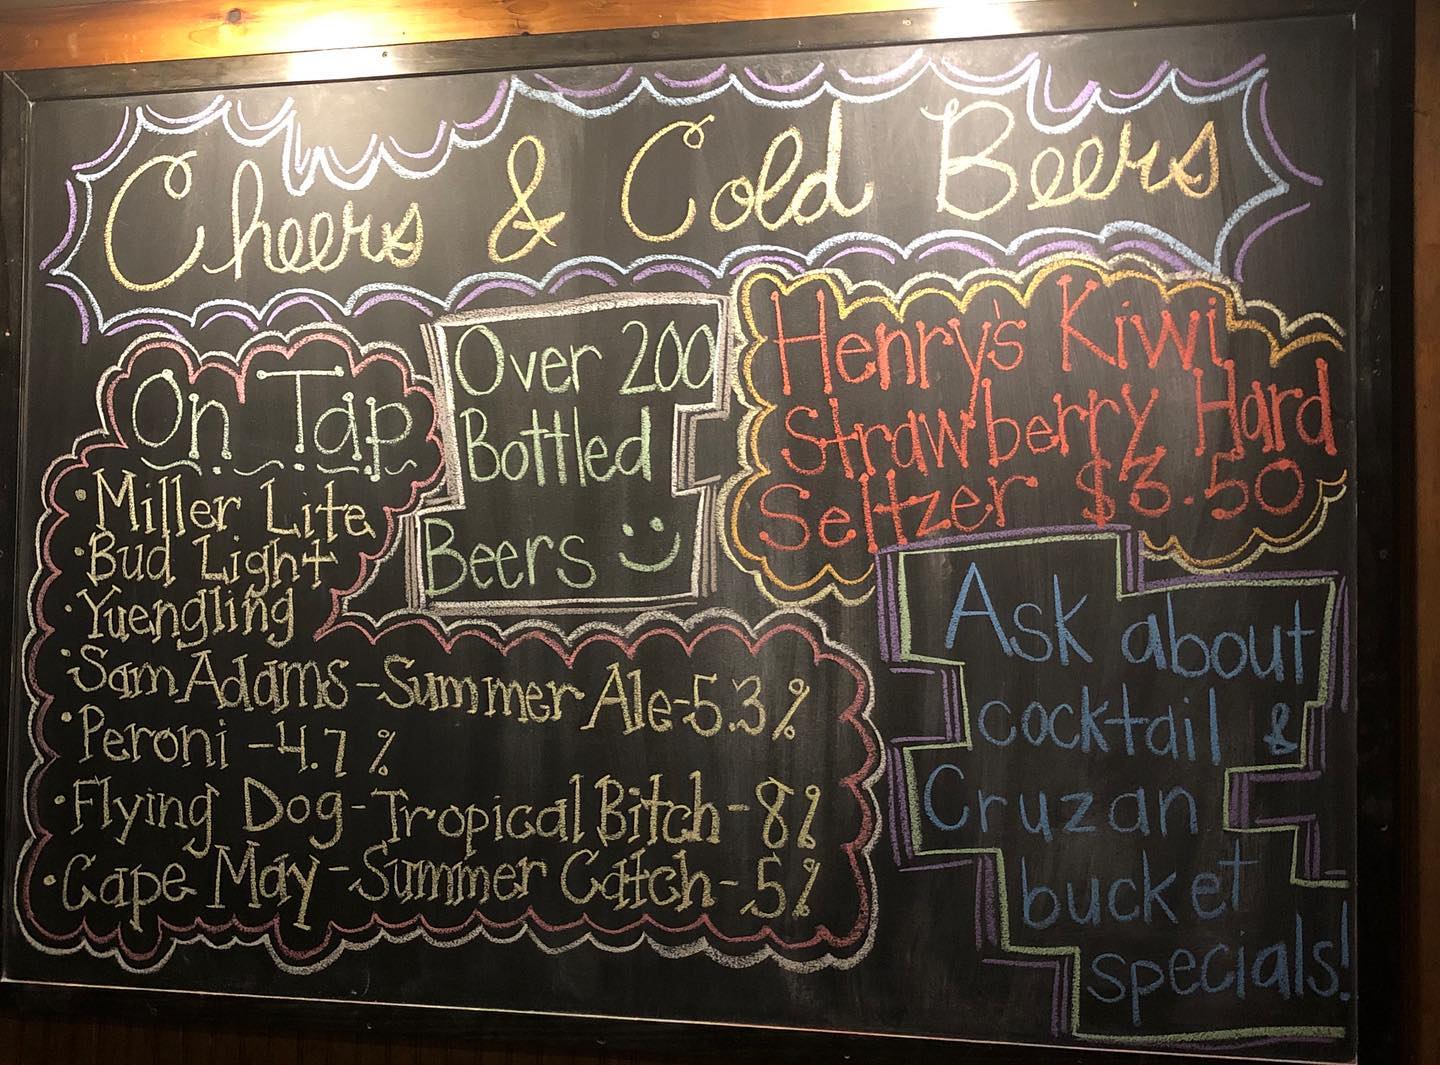 Cheers & Cold Beers
On Tap
·Miller Lite
·Bud Light
·Yuengling
·Sam Adams-Summer Ale-5.3%
·Peroni -4.7%
·Flying Dog-Tropical Bitch-8%
·Cape May-Summer Catch-5%
Over 200
Bottled
Beers
Henry's Kiwi
Strawberry Hard
Seltzer $3.50
Ask about
cocktail &
Cruzan
bucket
specials!